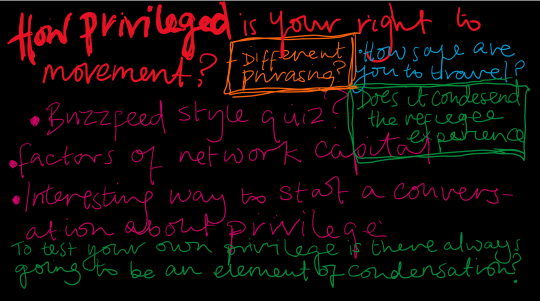 How privileged is your right to
movement?
- Different
phrasing?
• How safe are
you to travel?
Does it condesend
the refugee
experience
• Buzzfeed style quiz?
• factors of network capital
• Interesting way to start a convers-
ation about privilege
To test your own privilege is there always
going to be an element of condensation?